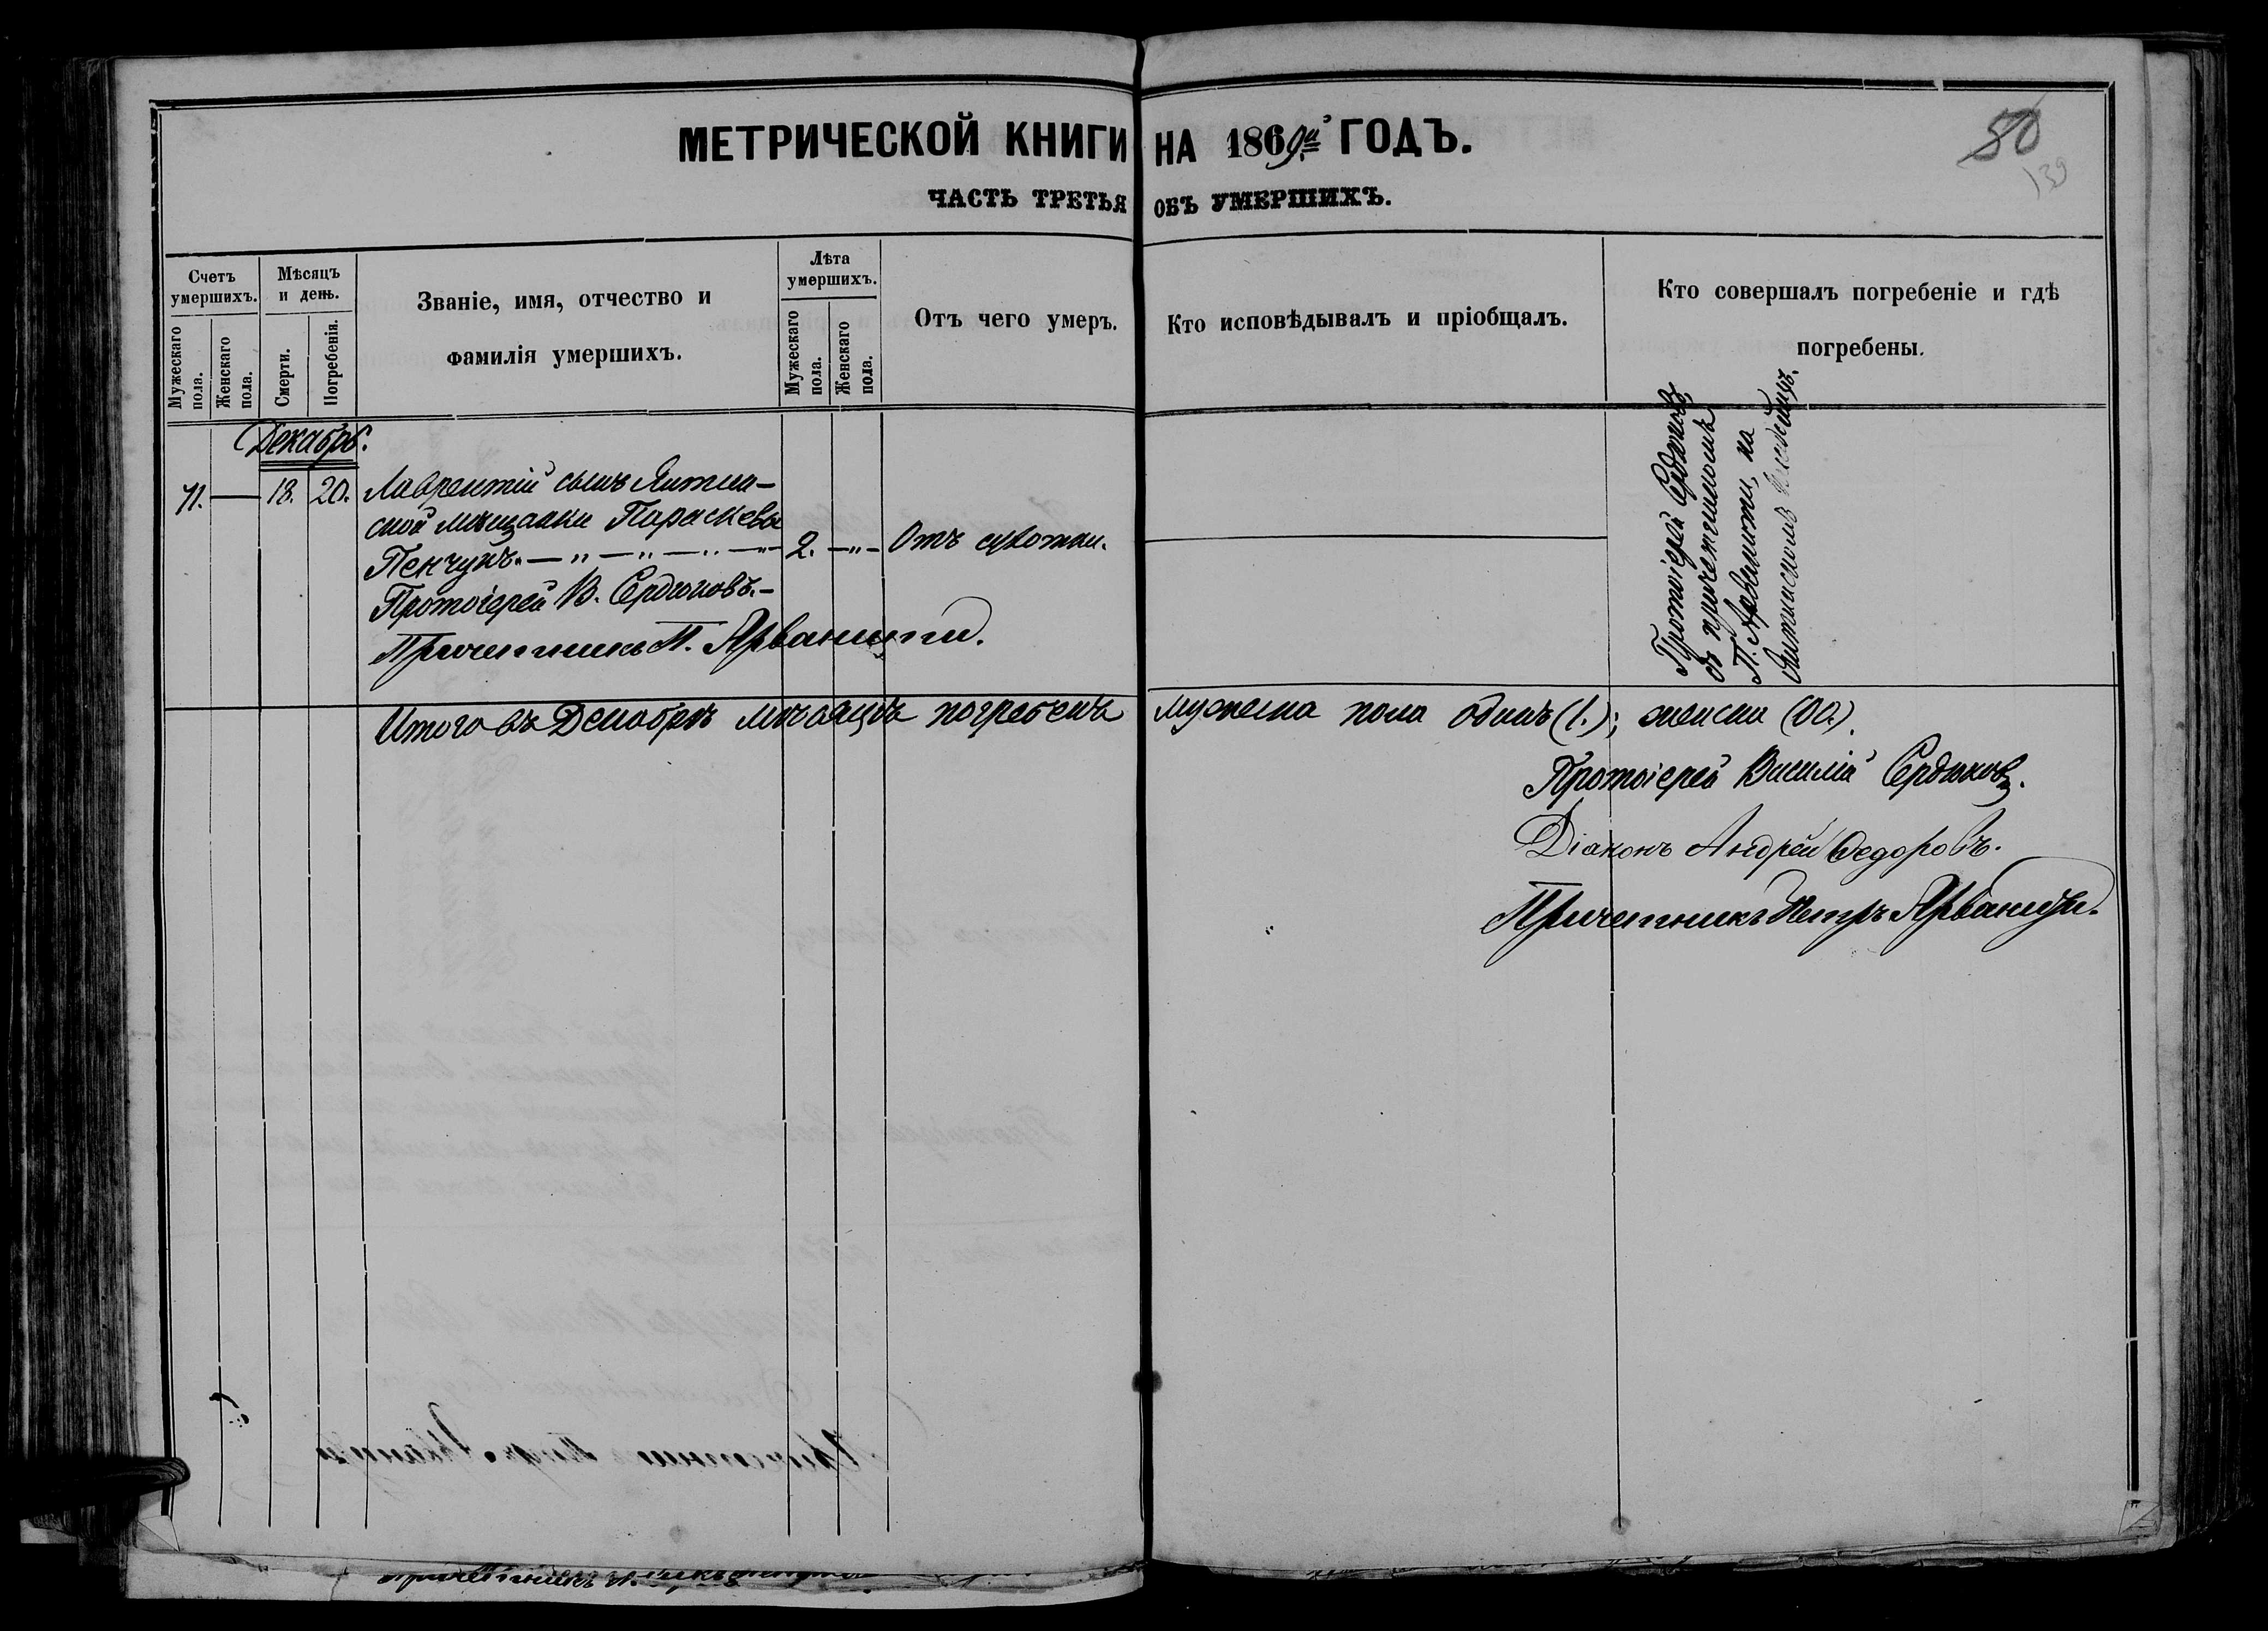 МЕТРИЧЕСКОЙ КНИГИ НА 1869й ГОДЪ.
ЧАСТЬ ТРЕТЬЯ ОБЪ УМЕРШИХЪ.
50
139
Счетъ умершихъ.
Мужескаго пола.
Женскаго пола.
Мѣсяцъ и день.
Смерти.
Погребенія.
Званіе, имя, отчество и
фамилія умершихъ.
Лѣта умершихъ.
Мужескаго пола.
Женскаго пола.
Отъ чего умеръ.
Кто исповѣдывалъ и пріобщалъ.
Кто совершалъ погребеніе и гдѣ
погребены.
Декабрь.
71. — 18. 20. Лаврентій сынъ Ялтин-
ской мѣщанки Параскевы
Пенчукъ. — „ — „ — „ — „ 2. — „ — Отъ сухотки.
Протоіерей В. Сердюковъ. —
Причетникъ П. Арванити.
Протоіерей Сердюковъ
съ причетникомъ
П. Арванити, на
Ялтинскомъ кладбищѣ.
Итого въ Декабрѣ мѣсяцѣ погребенъ мужеска пола одинъ (1.); женска (00.).
Протоіерей Василій Сердюковъ.
Діаконъ Андрей Федоровъ.
Причетникъ Петръ Арванити.